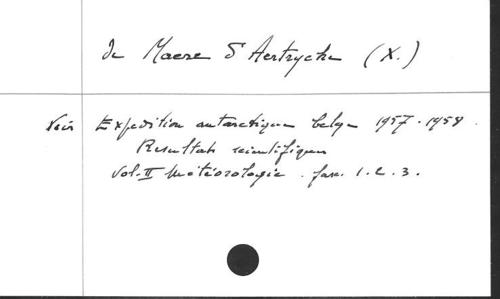 de Maere d'Aertrycke (X.)
Voir Expedition antarctique belge 1957-1958.
Resultats scientifiques
Vol. II Météorologie. fasc. 1. 2. 3.